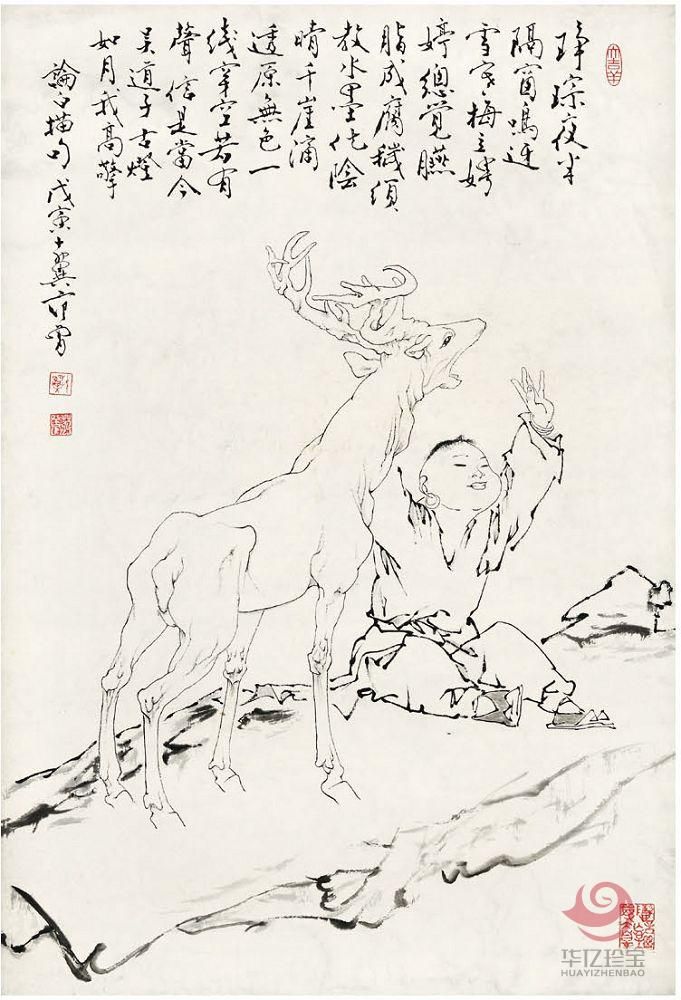 琤琮夜半
隔窗鳴近
雪寒梅立娉
婷總覺臙
脂成腐穢須
教水墨化陰
晴千崖
透原無色一
线穿空若有
聲信是當今
吴道子古燈
如月我高擎
論白描句 戊寅 十翼范曾
大吉羊
华亿珍宝
HUAYIZHENBAO